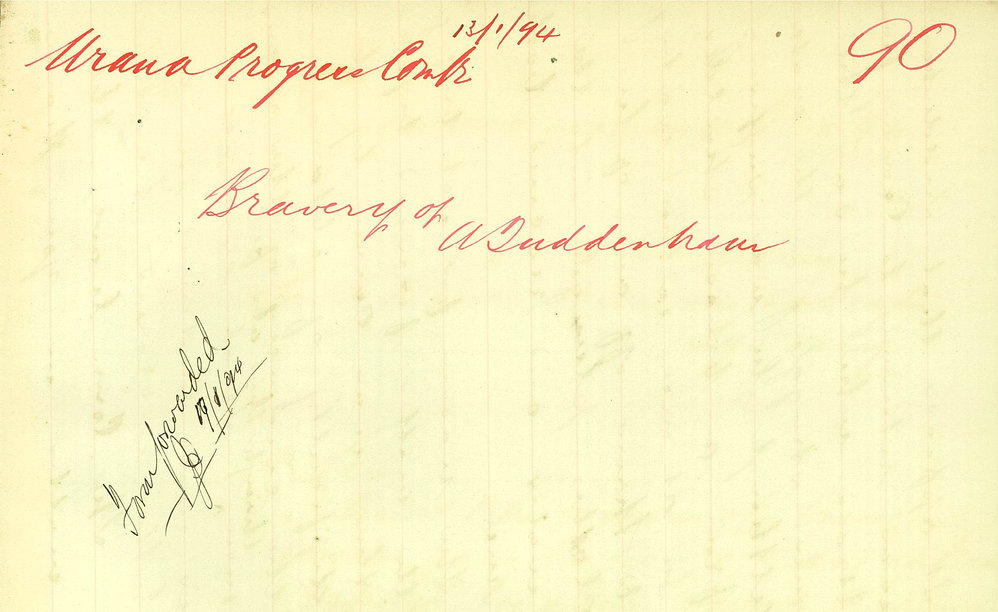 13/1/94
Urana Progress Comte
90
Bravery of
A Tuddenham
Form forwarded
/1/94